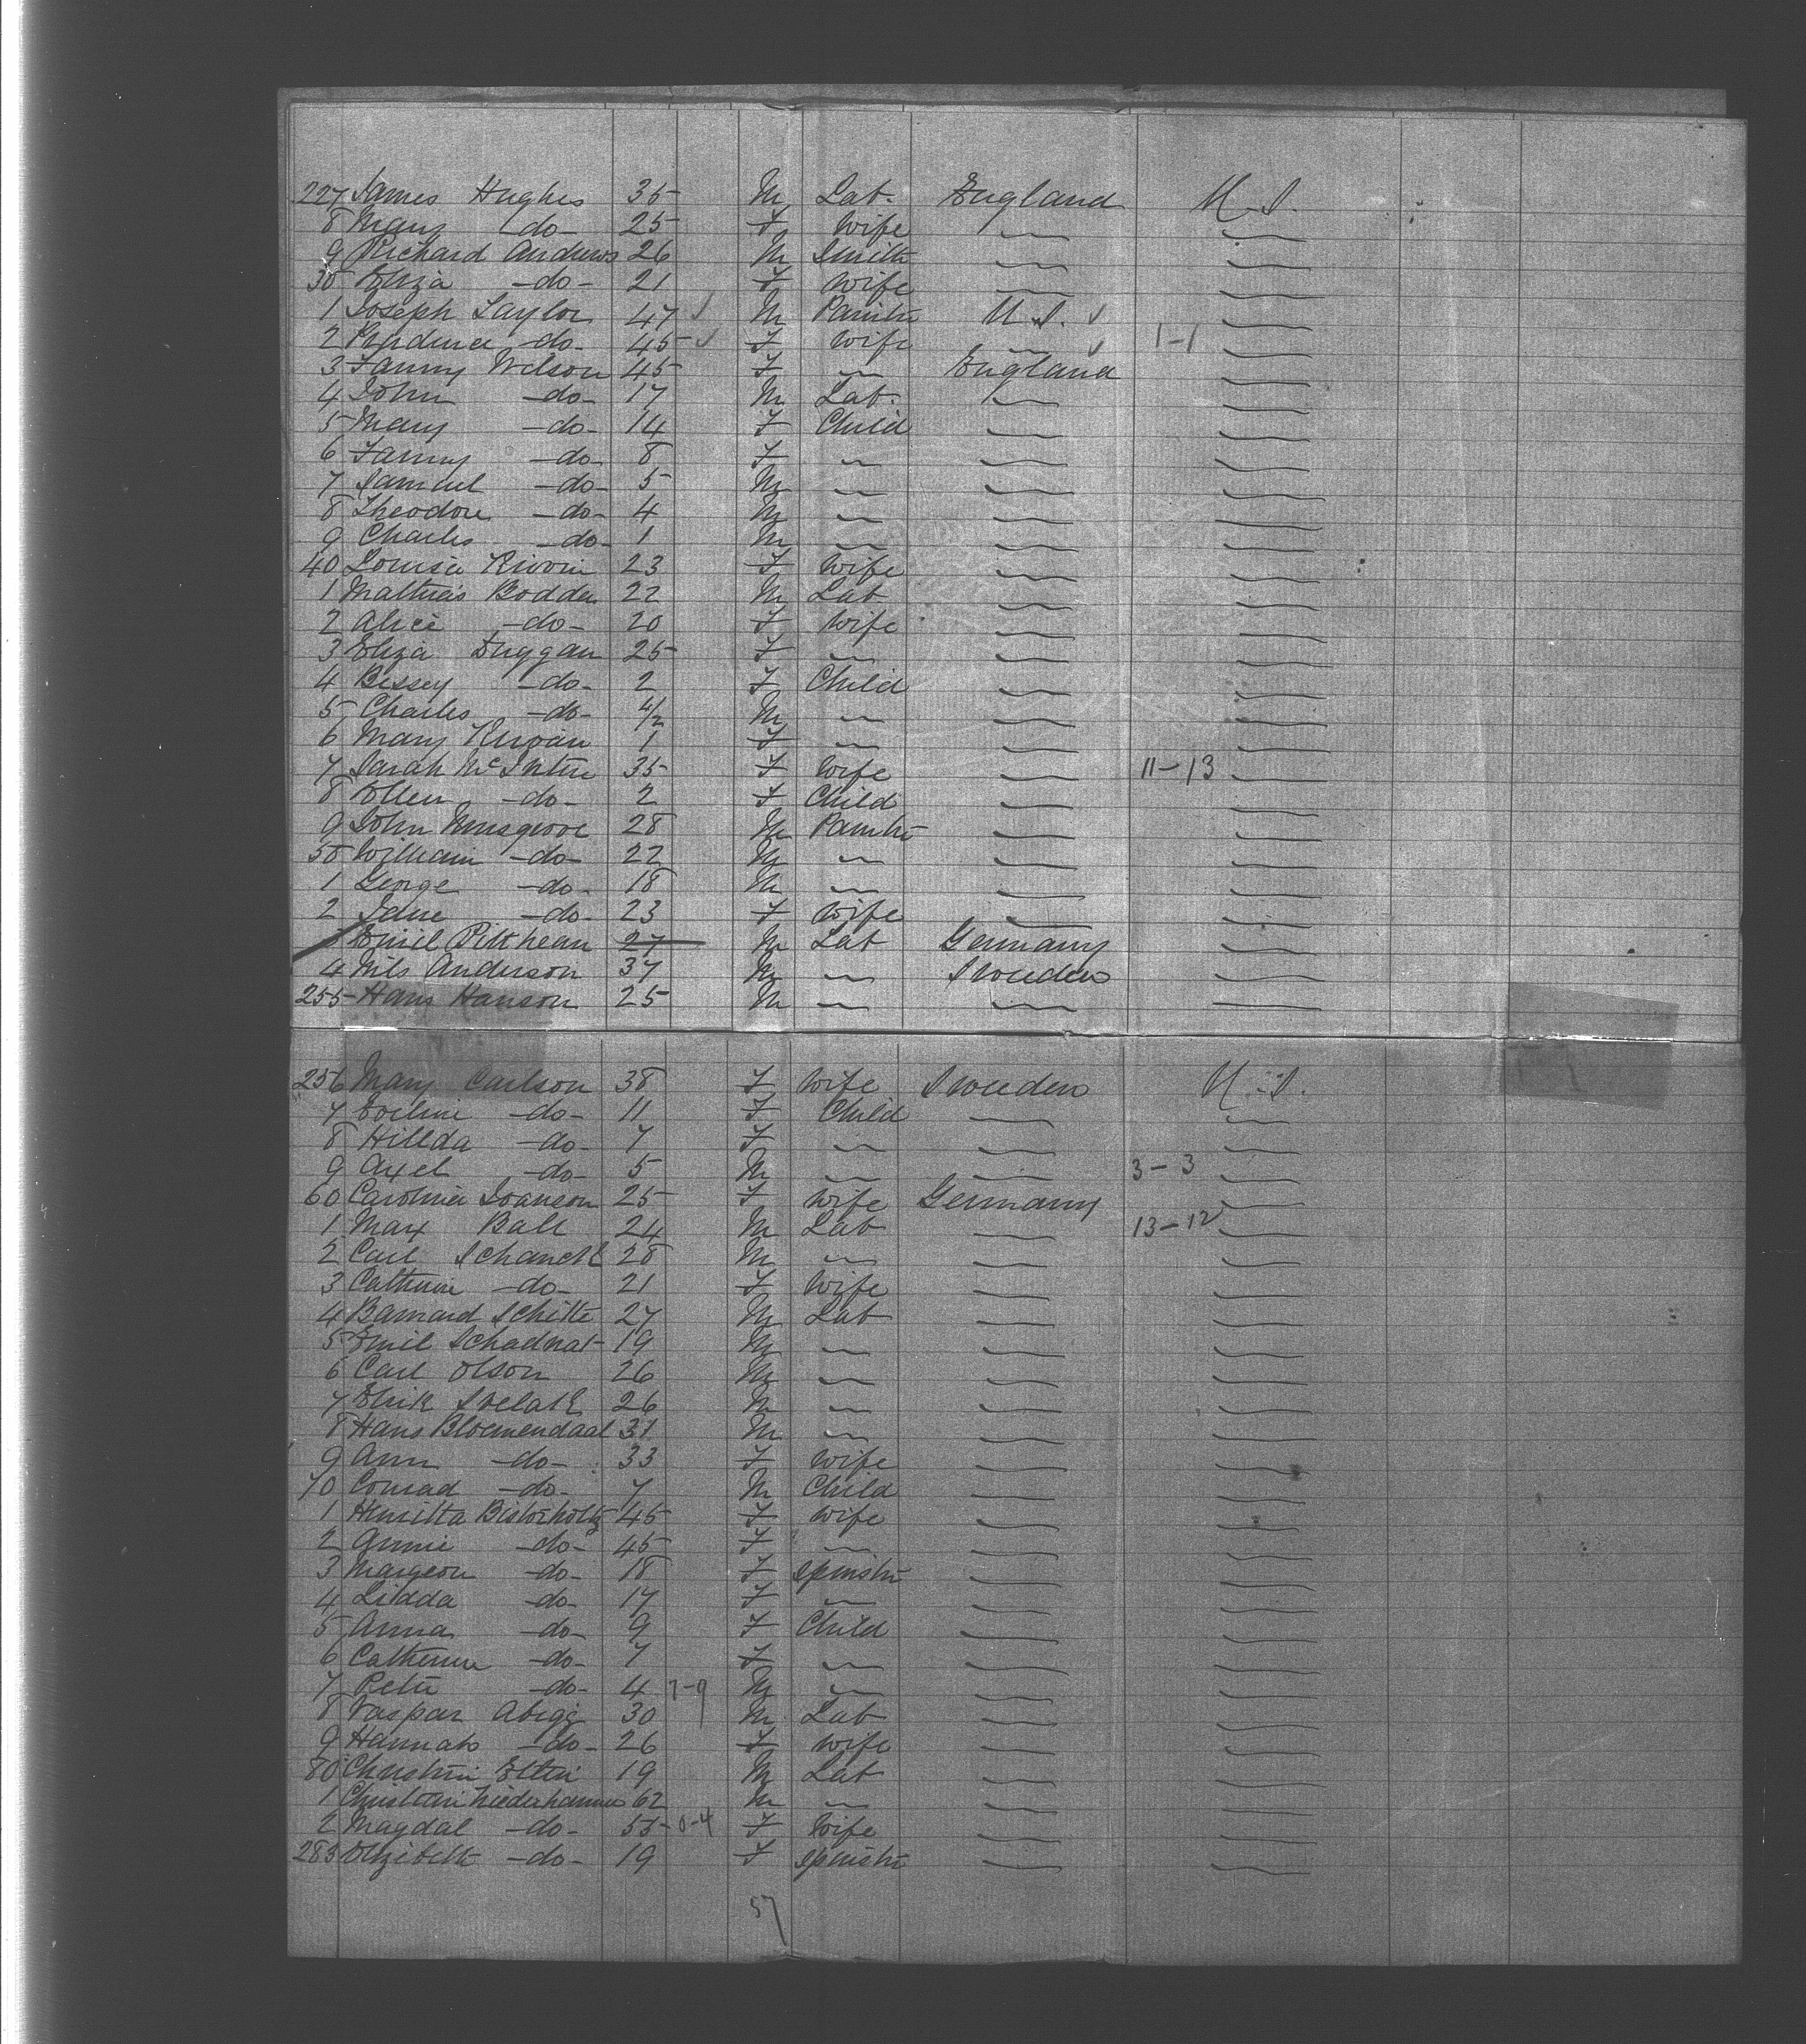 227 James Hughes 35 M Lab. England U.S.
8 Mary do 25 F Wife
9 Richard Andrews 26 M Smith
30 Eliza -do- 21 F Wife
1 Joseph Taylor 47 M Painter U.S.
2 Prudence do- 45 F Wife 1-1
3 Fanny Wilson 45 F England
4 John -do- 17 M Lab.
5 Mary -do- 14 F Child
6 Fanny -do- 8 F
7 Samuel -do- 5 M
8 Theodore -do- 4 M
9 Charles -do- 1 M
40 Louisa 23 F Wife
1 Mathias Bodden 22 M Lab
2 Alice -do- 20 F Wife
3 Eliza Duggan 25 F
4 Bessey -do- 2 F Child
5 Charles -do- M
6 Mary Kirvan 1 F
7 Sarah McIntire 35 F Wife 11-13
8 Ellen -do- 2 F Child
9 John Musgrove 28 M Painter
50 William -do- 22 M
1 George -do- 18 M
2 Jane -do- 23 F Wife
Emil 27 M Lab Germany
4 Nils Anderson 37 M Sweden
255 Hans Hanson 25 M
256 Mary Carlson 38 F Wife Sweden U.S.
7 Eveline -do- 11 F Child
8 Hillda -do- 7 F
9 Axel -do- 5 M 3-3
60 Carolina Joanson 25 F Wife Germany
1 Max Ball 24 M Lab 13-12
2 Carl Schanck 28 M
3 Catherine -do- 21 F Wife
4 Barnard Schitte 27 M Lab
5 Emil Schadnat 19 M
6 Carl Olson 26 M
7 Erik 26 M
8 Hans Bloemendaal 31 M
9 Ann -do- 33 F Wife
70 Conrad -do- 7 M Child
1 Henritta 45 F Wife
2 Annie -do- 45 F
3 -do- 18 F Spinster
4 Lidda do- 17 F
5 Anna -do- 9 F Child
6 Catherine -do- 7 F
7 Peter -do- 4 7-9 M
8 30 M Lab
9 Hannah -do- 26 F Wife
80 19 M Lab
1 62 M
2 Magdal -do- 55 0-4 F Wife
283 Elizibeth -do- 19 F Spinster
57